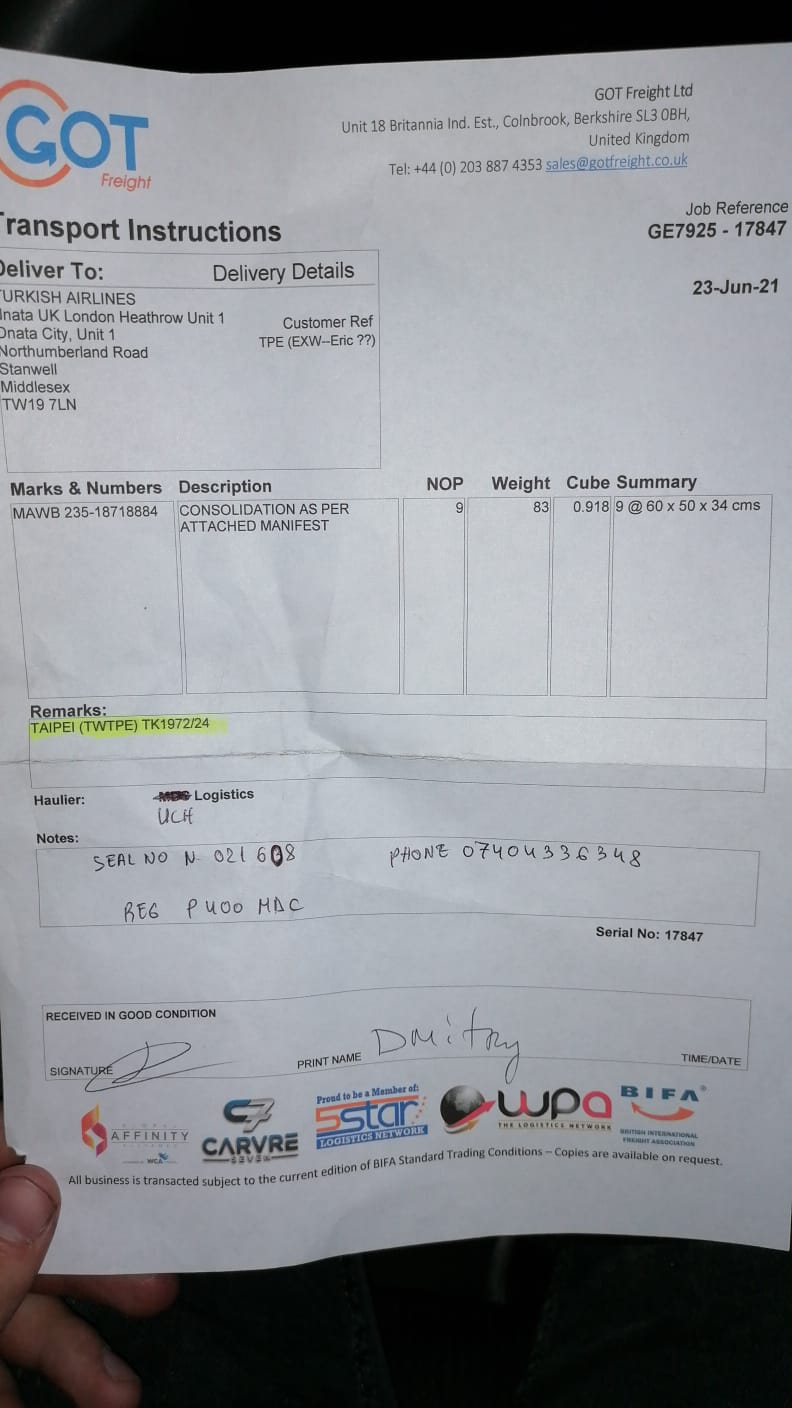 GOT
Freight
GOT Freight Ltd
Unit 18 Britannia Ind. Est., Colnbrook, Berkshire SL3 0BH,
United Kingdom
Tel: +44 (0) 203 887 4353 sales@gotfreight.co.uk
Transport Instructions
Job Reference
GE7925 - 17847
23-Jun-21
Deliver To: Delivery Details
TURKISH AIRLINES
Dnata UK London Heathrow Unit 1
Dnata City, Unit 1
Northumberland Road
Stanwell
Middlesex
TW19 7LN
Customer Ref
TPE (EXW--Eric ??)
Marks & Numbers Description NOP Weight Cube Summary
MAWB 235-18718884 CONSOLIDATION AS PER 9 83 0.918 9 @ 60 x 50 x 34 cms
ATTACHED MANIFEST
Remarks:
TAIPEI (TWTPE) TK1972/24
Haulier: Logistics
UCH
Notes:
SEAL NO N 021608 PHONE 07404336348
REG P400 MDC
Serial No: 17847
RECEIVED IN GOOD CONDITION
SIGNATURE PRINT NAME Dmitry TIME/DATE
AFFINITY
WCA
C7
CARVRE
SEVEN
Proud to be a Member of:
5star
LOGISTICS NETWORK
wpa
THE LOGISTICS NETWORK
BIFA
BRITISH INTERNATIONAL
FREIGHT ASSOCIATION
All business is transacted subject to the current edition of BIFA Standard Trading Conditions – Copies are available on request.